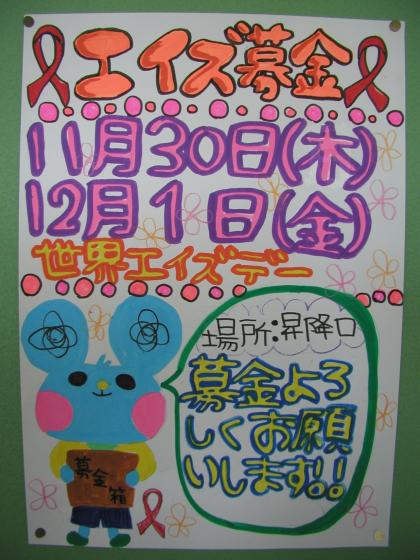 エイズ募金
11月30日(木)
12月1日(金)
世界エイズデー
場所:昇降口
募金よろ
しくお願
いします!!
募金
箱